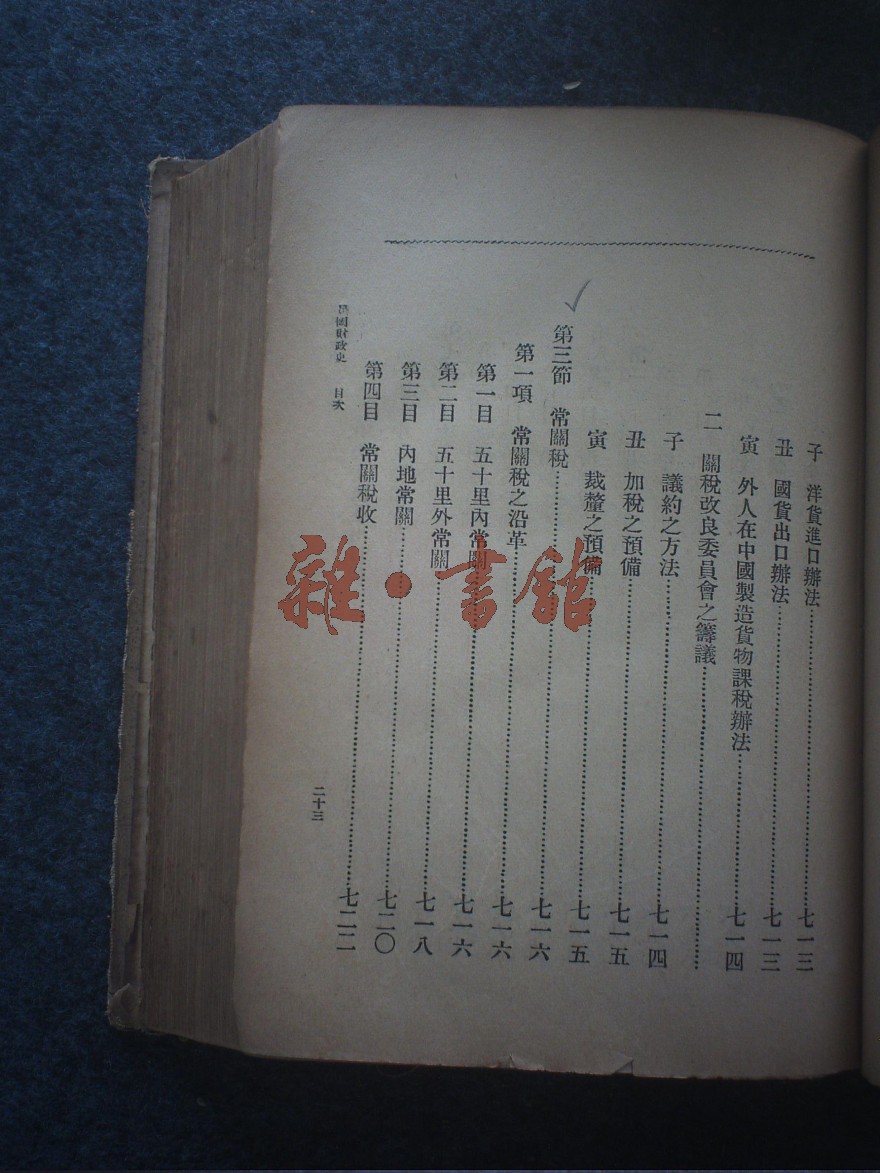 子　洋貨進口辦法……七一三
丑　國貨出口辦法……七一三
寅　外人在中國製造貨物課稅辦法……七一四
二　關稅改良委員會之籌議……
子　議約之方法……七一四
丑　加稅之預備……七一五
寅　裁釐之預備……七一五
第三節　常關稅……七一六
第一項　常關稅之沿革……七一六
第一目　五十里內常關……七一六
第二目　五十里外常關……七一八
第三目　內地常關……七二〇
第四目　常關稅收……七二二
民國財政史　目次
二十三
雜·書館